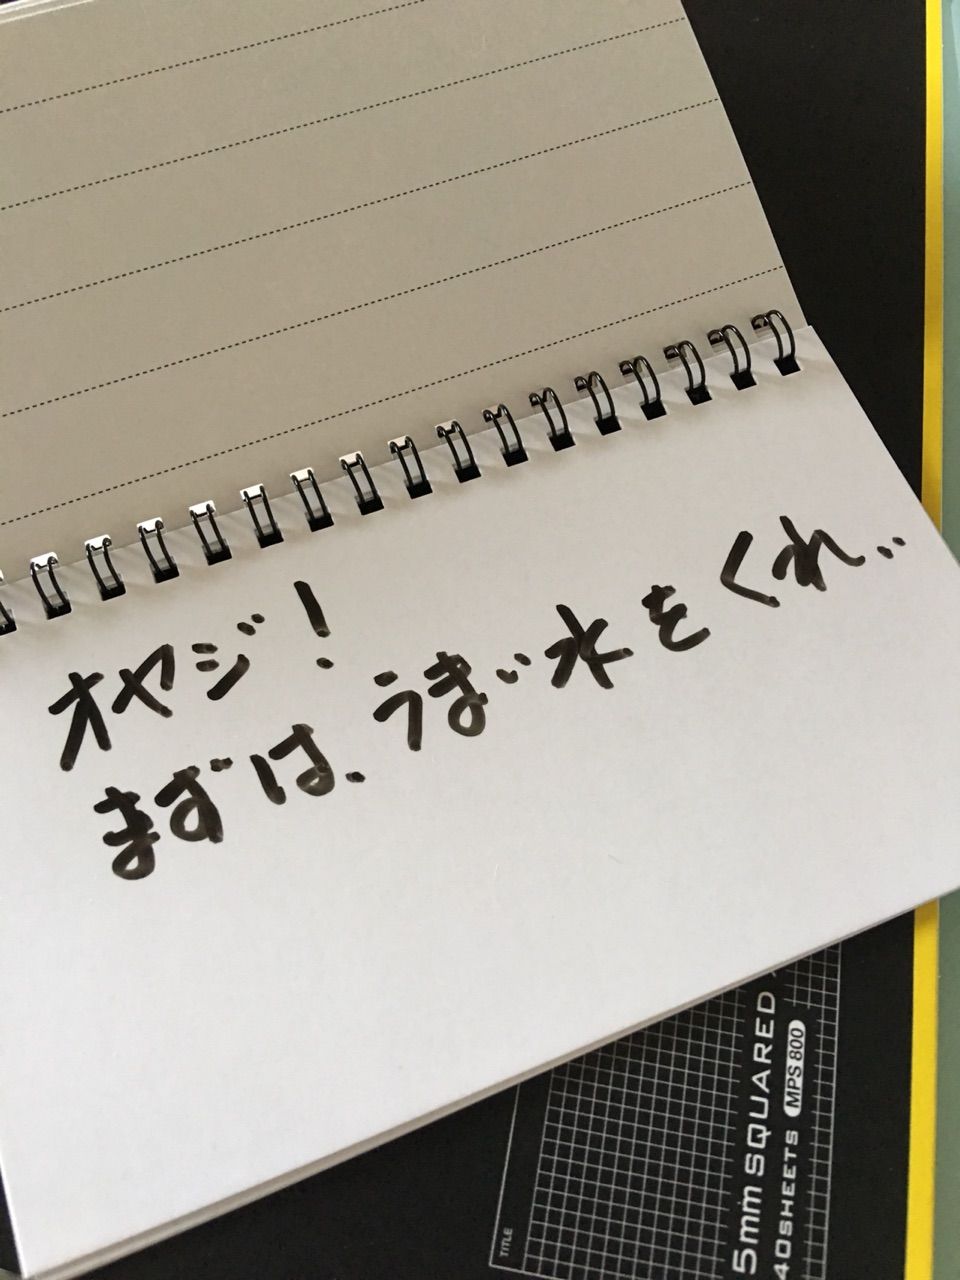 オヤジ!
まずは、うまい水をくれ..
5mm SQUARED
40SHEETS MPS 800
TITLE